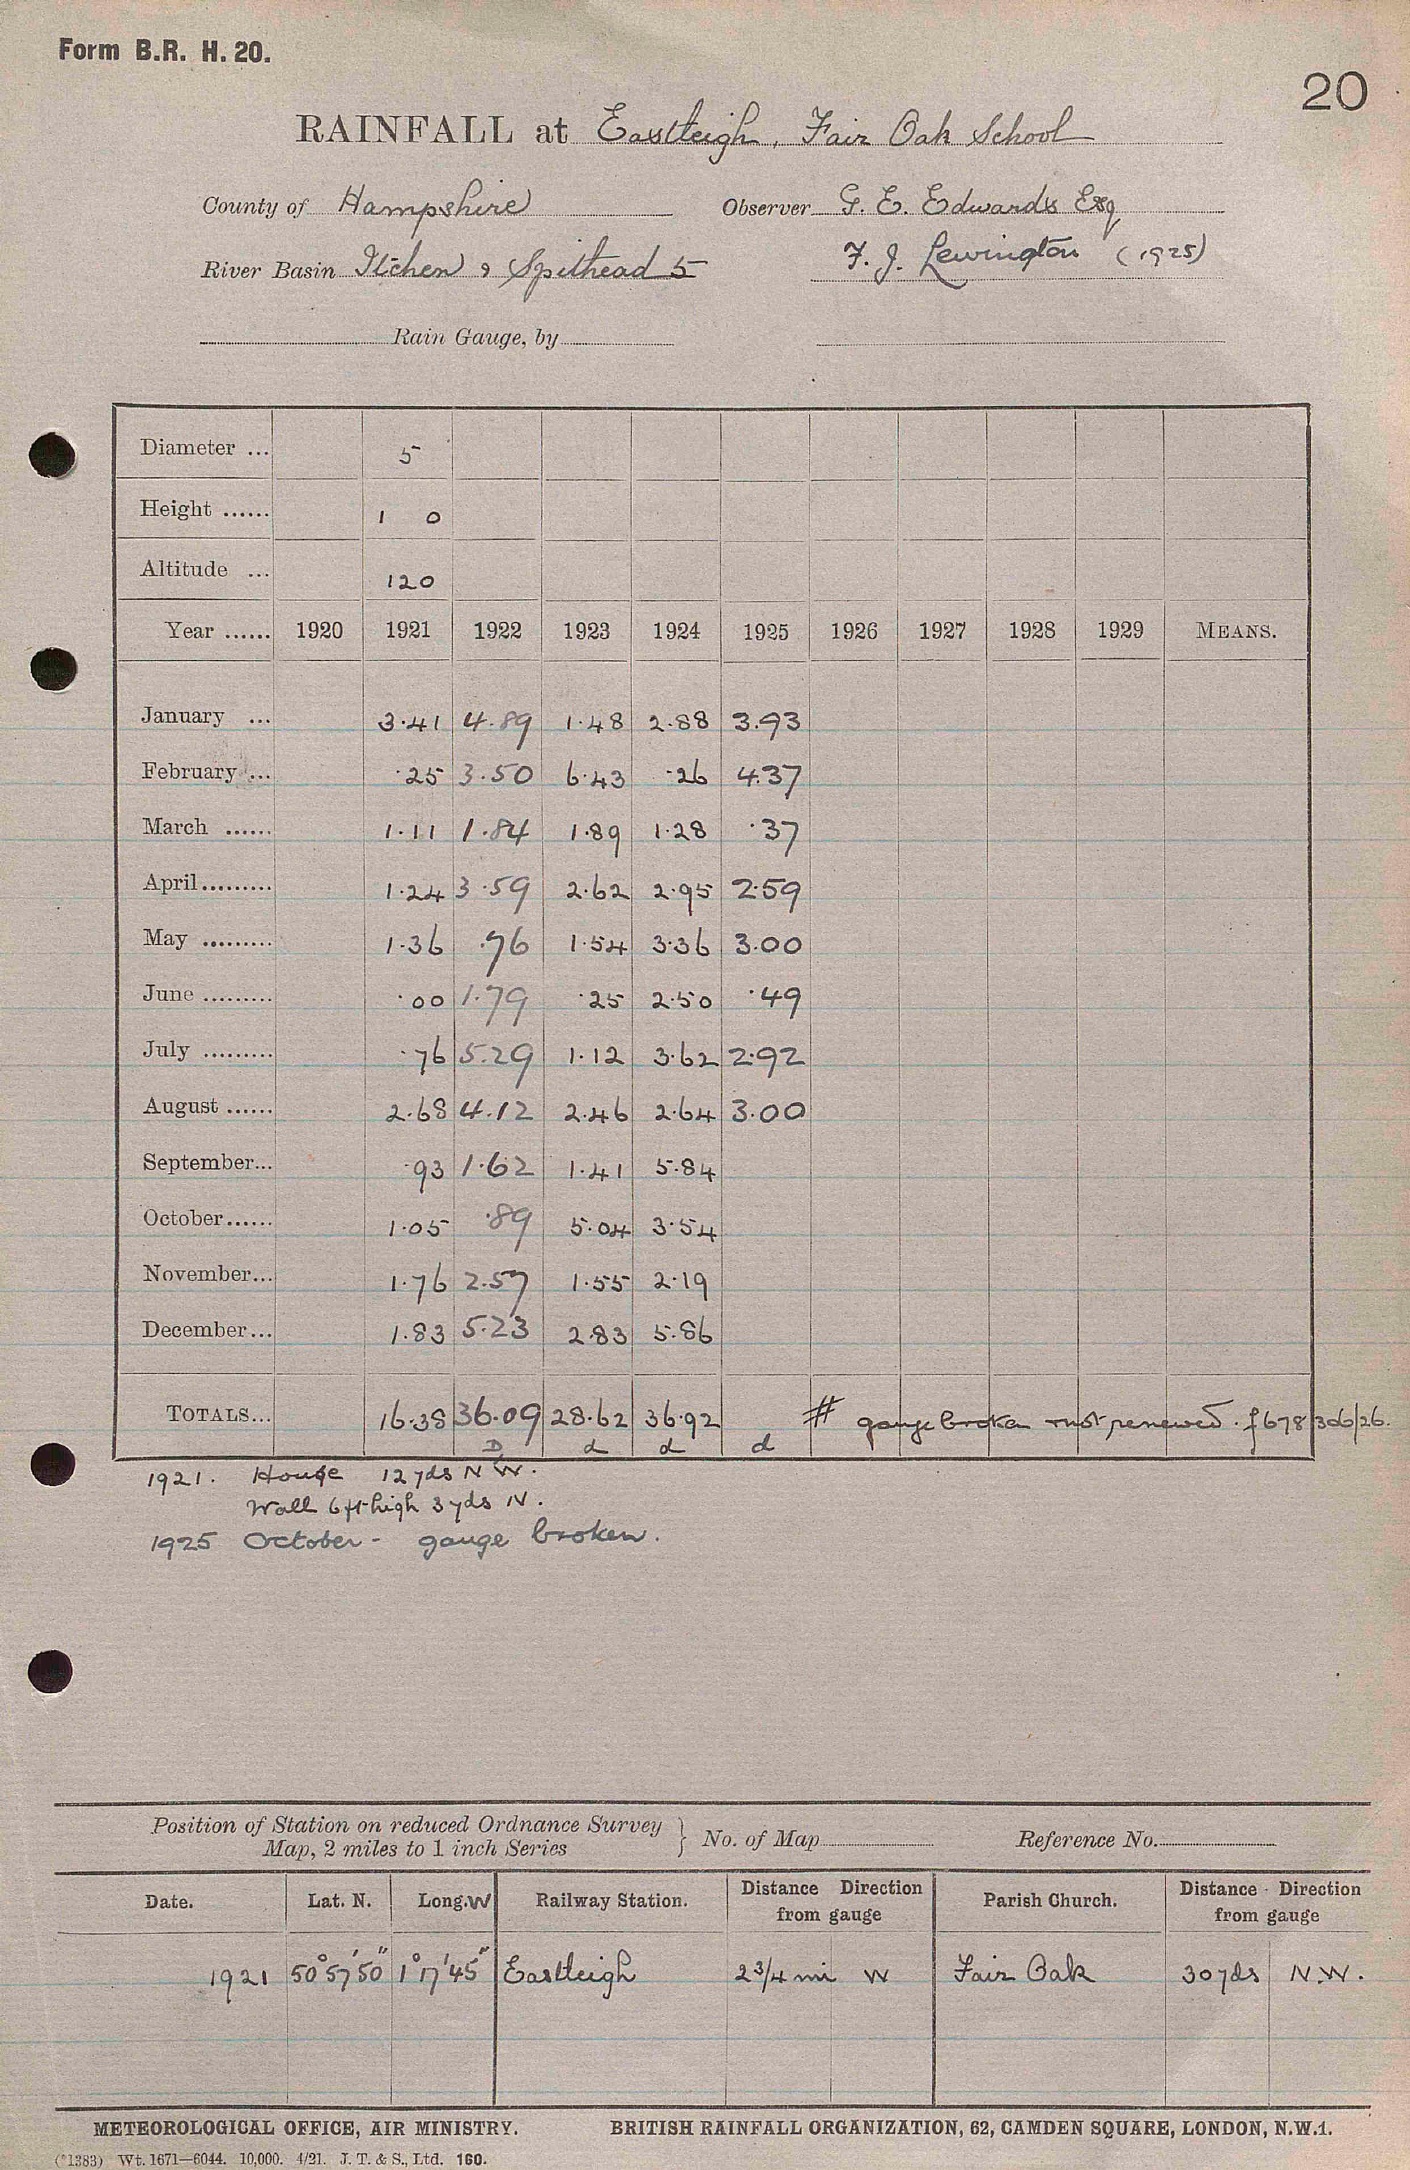 Form B.R. H. 20.
20
RAINFALL at Eastleigh, Fair Oak School
County of Hampshire Observer G. E. Edwards Esq
River Basin Itchen & Spithead 5 F. J. Lewington (1925)
Rain Gauge, by
Diameter ... 5
Height ...... 1 0
Altitude ... 120
Year ...... 1920 1921 1922 1923 1924 1925 1926 1927 1928 1929 MEANS.
January ... 3.41 4.89 1.48 2.88 3.93
February ... .25 3.50 6.43 .26 4.37
March ...... 1.11 1.84 1.89 1.28 .37
April......... 1.24 3.59 2.62 2.95 2.59
May ......... 1.36 .76 1.54 3.36 3.00
June ......... .00 1.79 .25 2.50 .49
July ......... .76 5.29 1.12 3.62 2.92
August ...... 2.68 4.12 2.46 2.64 3.00
September... .93 1.62 1.41 5.84
October...... 1.05 .89 5.04 3.54
November... 1.76 2.57 1.55 2.19
December... 1.83 5.23 2.83 5.86
TOTALS... 16.38 36.09 28.62 36.92 # gauge broken not renewed. f678/306/26.
D d d d
1921. House 12 yds N W.
Wall 6 ft high 3 yds N.
1925 October - gauge broken.
Position of Station on reduced Ordnance Survey
Map, 2 miles to 1 inch Series } No. of Map Reference No.
Date. Lat. N. Long. W Railway Station. Distance Direction from gauge Parish Church. Distance Direction from gauge
1921 50° 57' 50" 1° 17' 45" Eastleigh 2 3/4 mi W Fair Oak 30 yds N.W.
METEOROLOGICAL OFFICE, AIR MINISTRY. BRITISH RAINFALL ORGANIZATION, 62, CAMDEN SQUARE, LONDON, N.W.1.
(*1383) Wt. 1671—6044. 10,000. 4/21. J. T. & S., Ltd. 160.